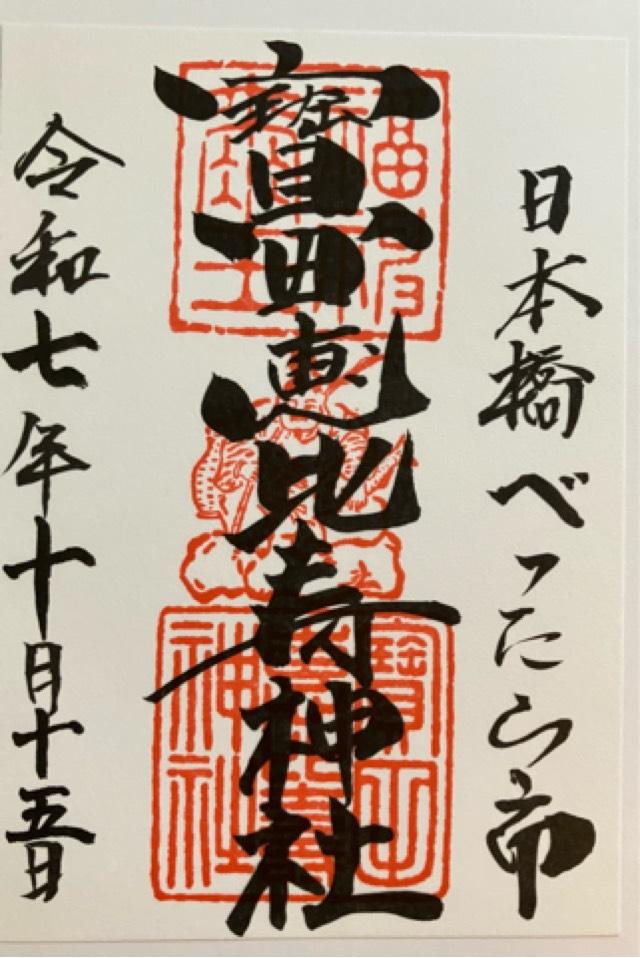 日本橋べったら市
寶田恵比寿神社
令和七年十月十五日